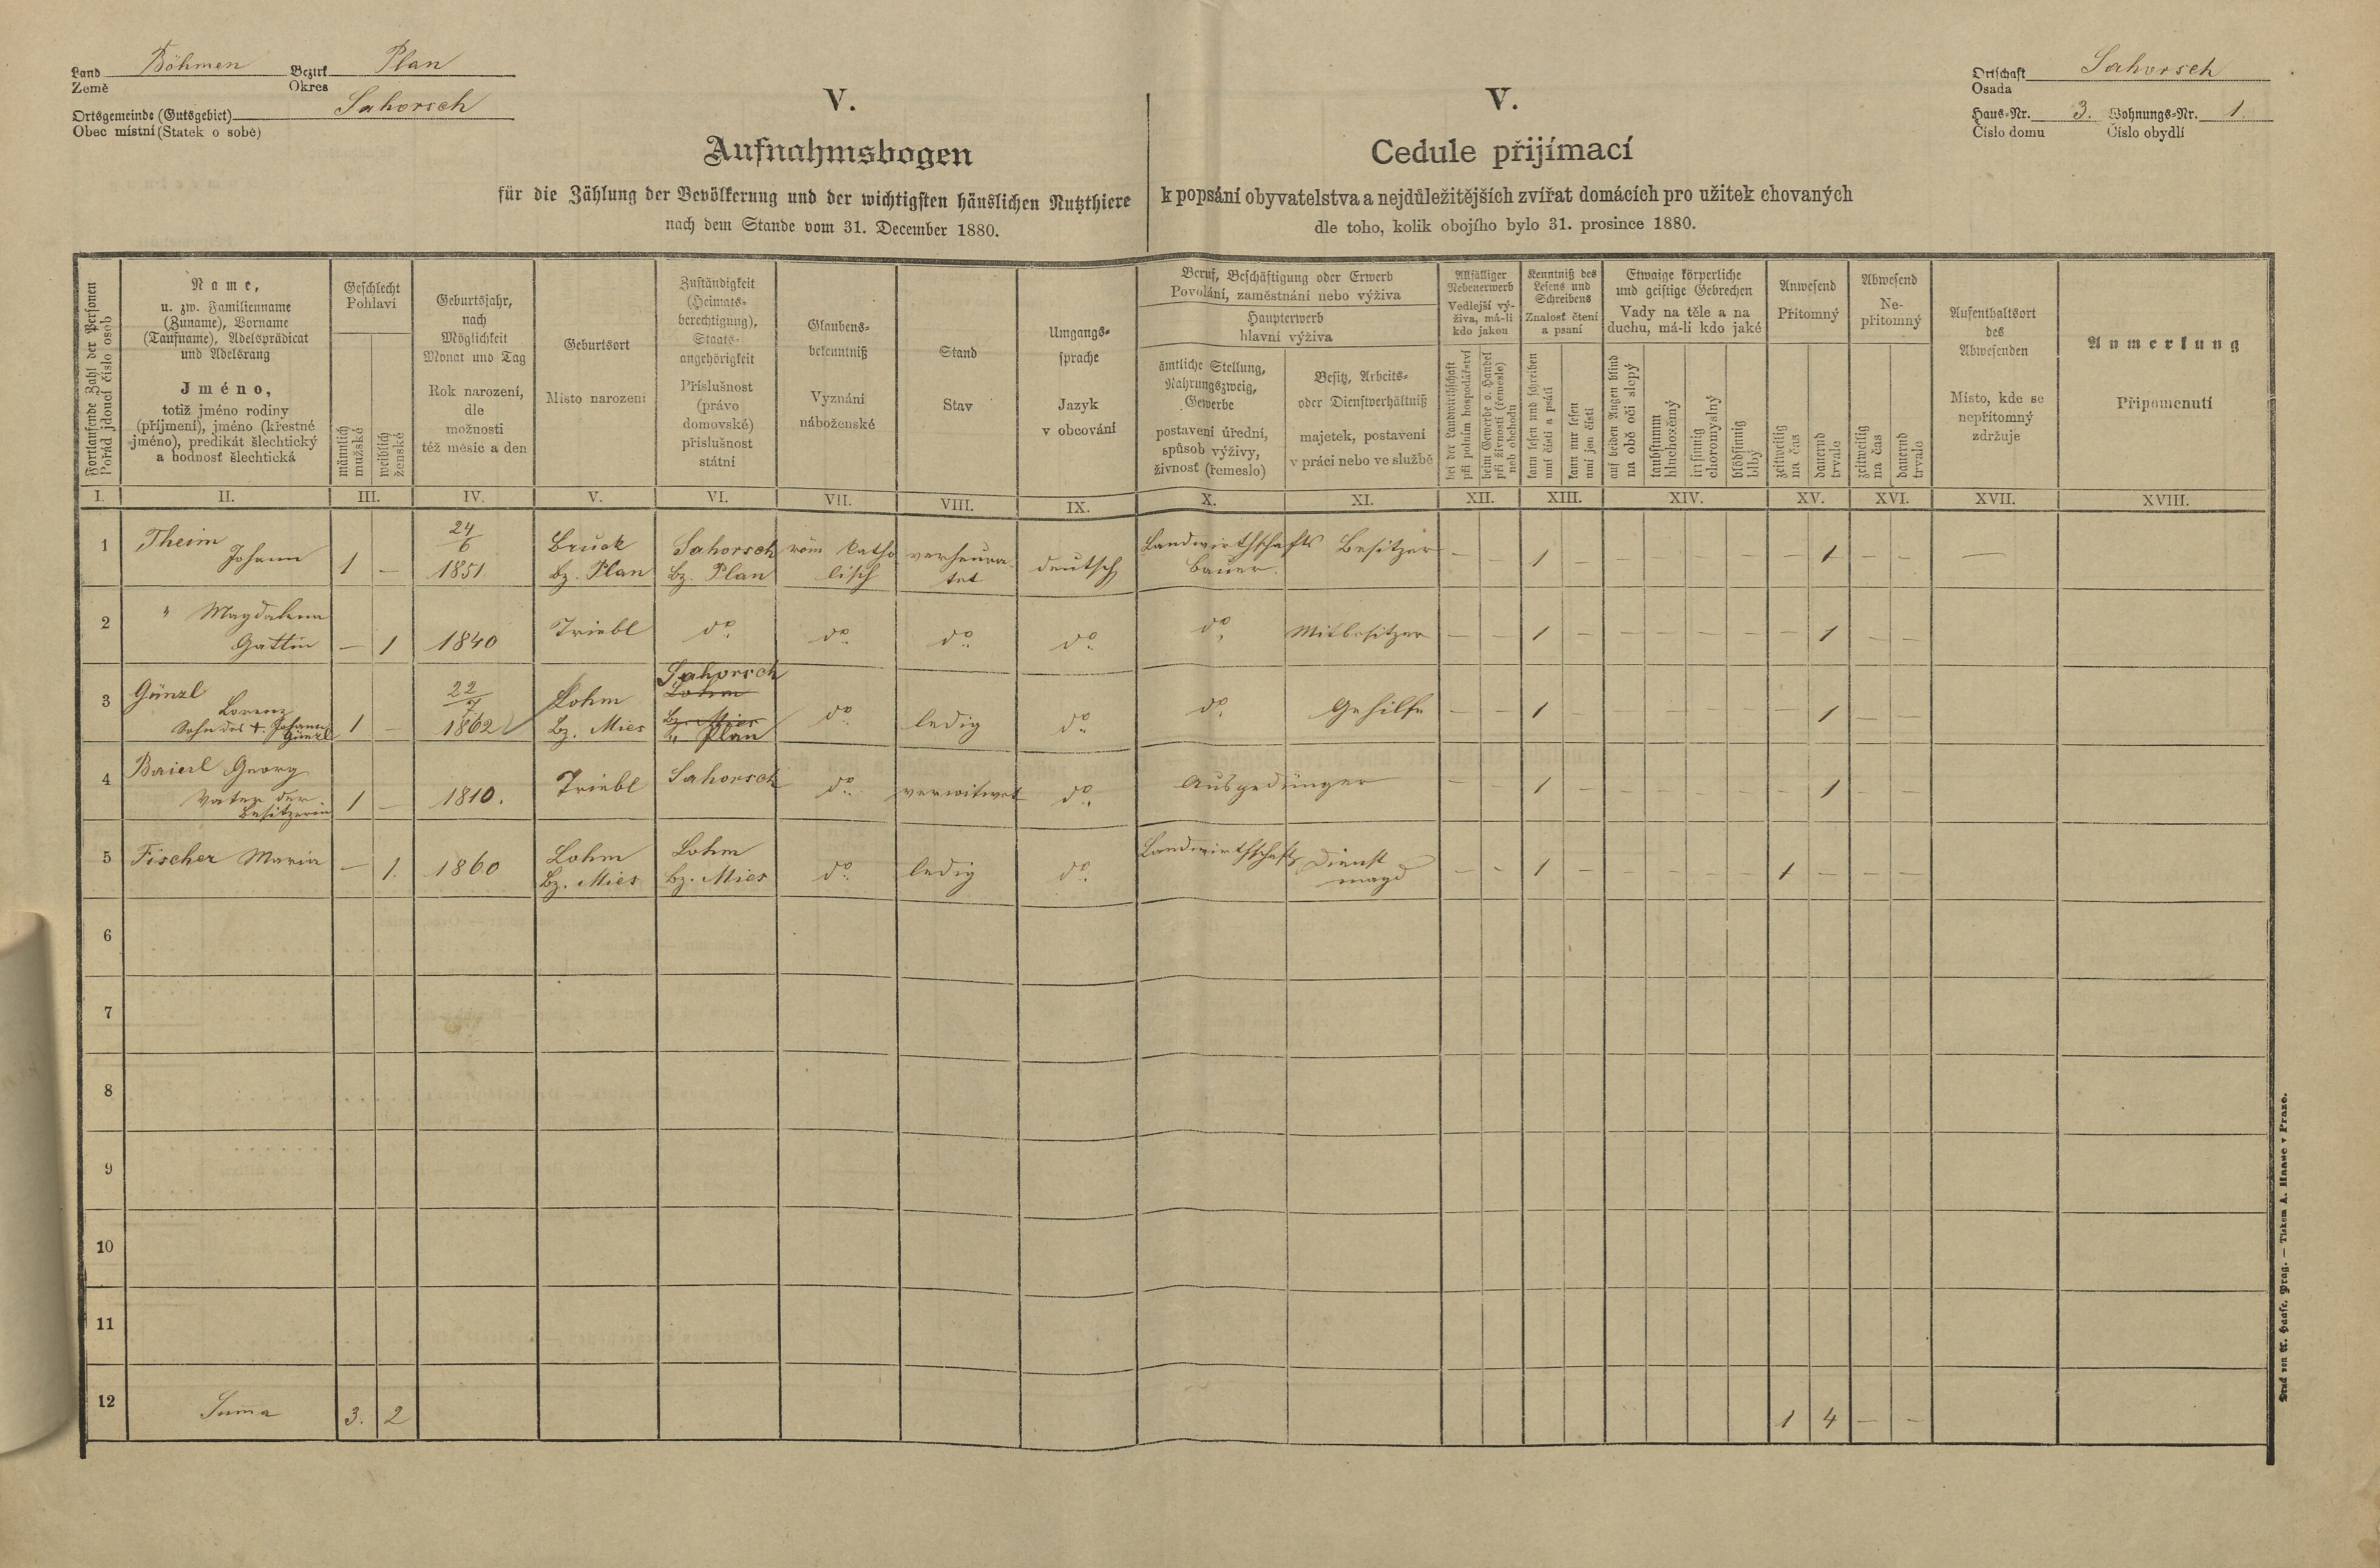 Land Böhmen Bezirk Plan
Země Okres
Ortsgemeinde (Gutsgebiet) Sahorsch
Obec místní (Statek o sobě)
V.
Aufnahmsbogen
für die Zählung der Bevölkerung und der wichtigsten häuslichen Nutzthiere
nach dem Stande vom 31. December 1880.
V.
Cedule přijímací
k popsání obyvatelstva a nejdůležitějších zvířat domácích pro užitek chovaných
dle toho, kolik obojího bylo 31. prosince 1880.
Ortschaft Sahorsch
Osada
Haus-Nr. 3. Wohnungs-Nr. 1.
Číslo domu Číslo obydlí
Fortlaufende Zahl der Personen
Pořád jdoucí číslo osob
Name,
u. zw. Familienname
(Zuname), Vorname
(Taufname), Adelsprädicat
und Adelsrang
Jméno,
totiž jméno rodiny
(příjmení), jméno (křestné
jméno), predikát šlechtický
a hodnosť šlechtická
Geschlecht
Pohlaví
männlich
mužské
weiblich
ženské
Geburtsjahr,
nach
Möglichkeit
Monat und Tag
Rok narození,
dle
možnosti
též měsíc a den
Geburtsort
Místo narození
Zuständigkeit
(Heimats-
berechtigung),
Staats-
angehörigkeit
Příslušnost
(právo
domovské)
příslušnost
státní
Glaubens-
bekenntniß
Vyznání
náboženské
Stand
Stav
Umgangs-
sprache
Jazyk
v obcování
Beruf, Beschäftigung oder Erwerb
Povolání, zaměstnání nebo výživa
Haupterwerb
hlavní výživa
ämtliche Stellung,
Nahrungszweig,
Gewerbe
postavení úřední,
způsob výživy,
živnosť (řemeslo)
Besitz, Arbeits-
oder Dienstverhältniß
majetek, postavení
v práci nebo ve službě
Allfälliger
Nebenerwerb
Vedlejší vý-
živa, má-li
kdo jakou
bei der Landwirthschaft
při polním hospodářství
beim Gewerbe o. Handel
při živnosti (řemesle)
neb obchodu
Kenntniß des
Lesens und
Schreibens
Znalosť čtení
a psaní
kann lesen und schreiben
umí čísti a psáti
kann nur lesen
umí jen čísti
Etwaige körperliche
und geistige Gebrechen
Vady na těle a na
duchu, má-li kdo jaké
auf beiden Augen blind
na obě oči slepý
taubstumm
hluchoněmý
irrsinnig
choromyslný
blödsinnig
blbý
Anwesend
Přítomný
zeitweilig
na čas
dauernd
trvale
Abwesend
Ne-
přítomný
zeitweilig
na čas
dauernd
trvale
Aufenthaltsort
des
Abwesenden
Místo, kde se
nepřítomný
zdržuje
Anmerkung
Připomenutí
I. II. III. IV. V. VI. VII. VIII. IX. X. XI. XII. XIII. XIV. XV. XVI. XVII. XVIII.
1 Theim Johann 1 — 24/6 1851 Bruck Bz. Plan Sahorsch Bz. Plan röm katholisch verheuratet deutsch Landwirthschafts Besitzer Bauer — — 1 — — — — — — 1 — — —
2 " Magdalena Gattin — 1 1840 Triebl do do do do do Mitbesitzer — — 1 — — — — — — 1 — —
3 Günzl Lorenz Sohn des +. Johann Günzl 1 — 22/7 1862 Lohm Bz. Mies Sahorsch Lohm Bz. Mies Bz. Plan do ledig do do Gehilfe — — 1 — — — — — — 1 — —
4 Baierl Georg Vater der Besitzerin 1 — 1810. Triebl Sahorsch do verwitwet do Ausgedünger — — 1 — — — — — — 1 — —
5 Fischer Maria — 1. 1860 Lohm Bz. Mies Lohm Bz. Mies do ledig do Landwirthschafts Dienst magd — — 1 — — — — — 1 — — —
6
7
8
9
10
11
12 Suma 3. 2 1 4 — —
Druck von A. Haase, Prag. — Tiskem A. Haase v Praze.